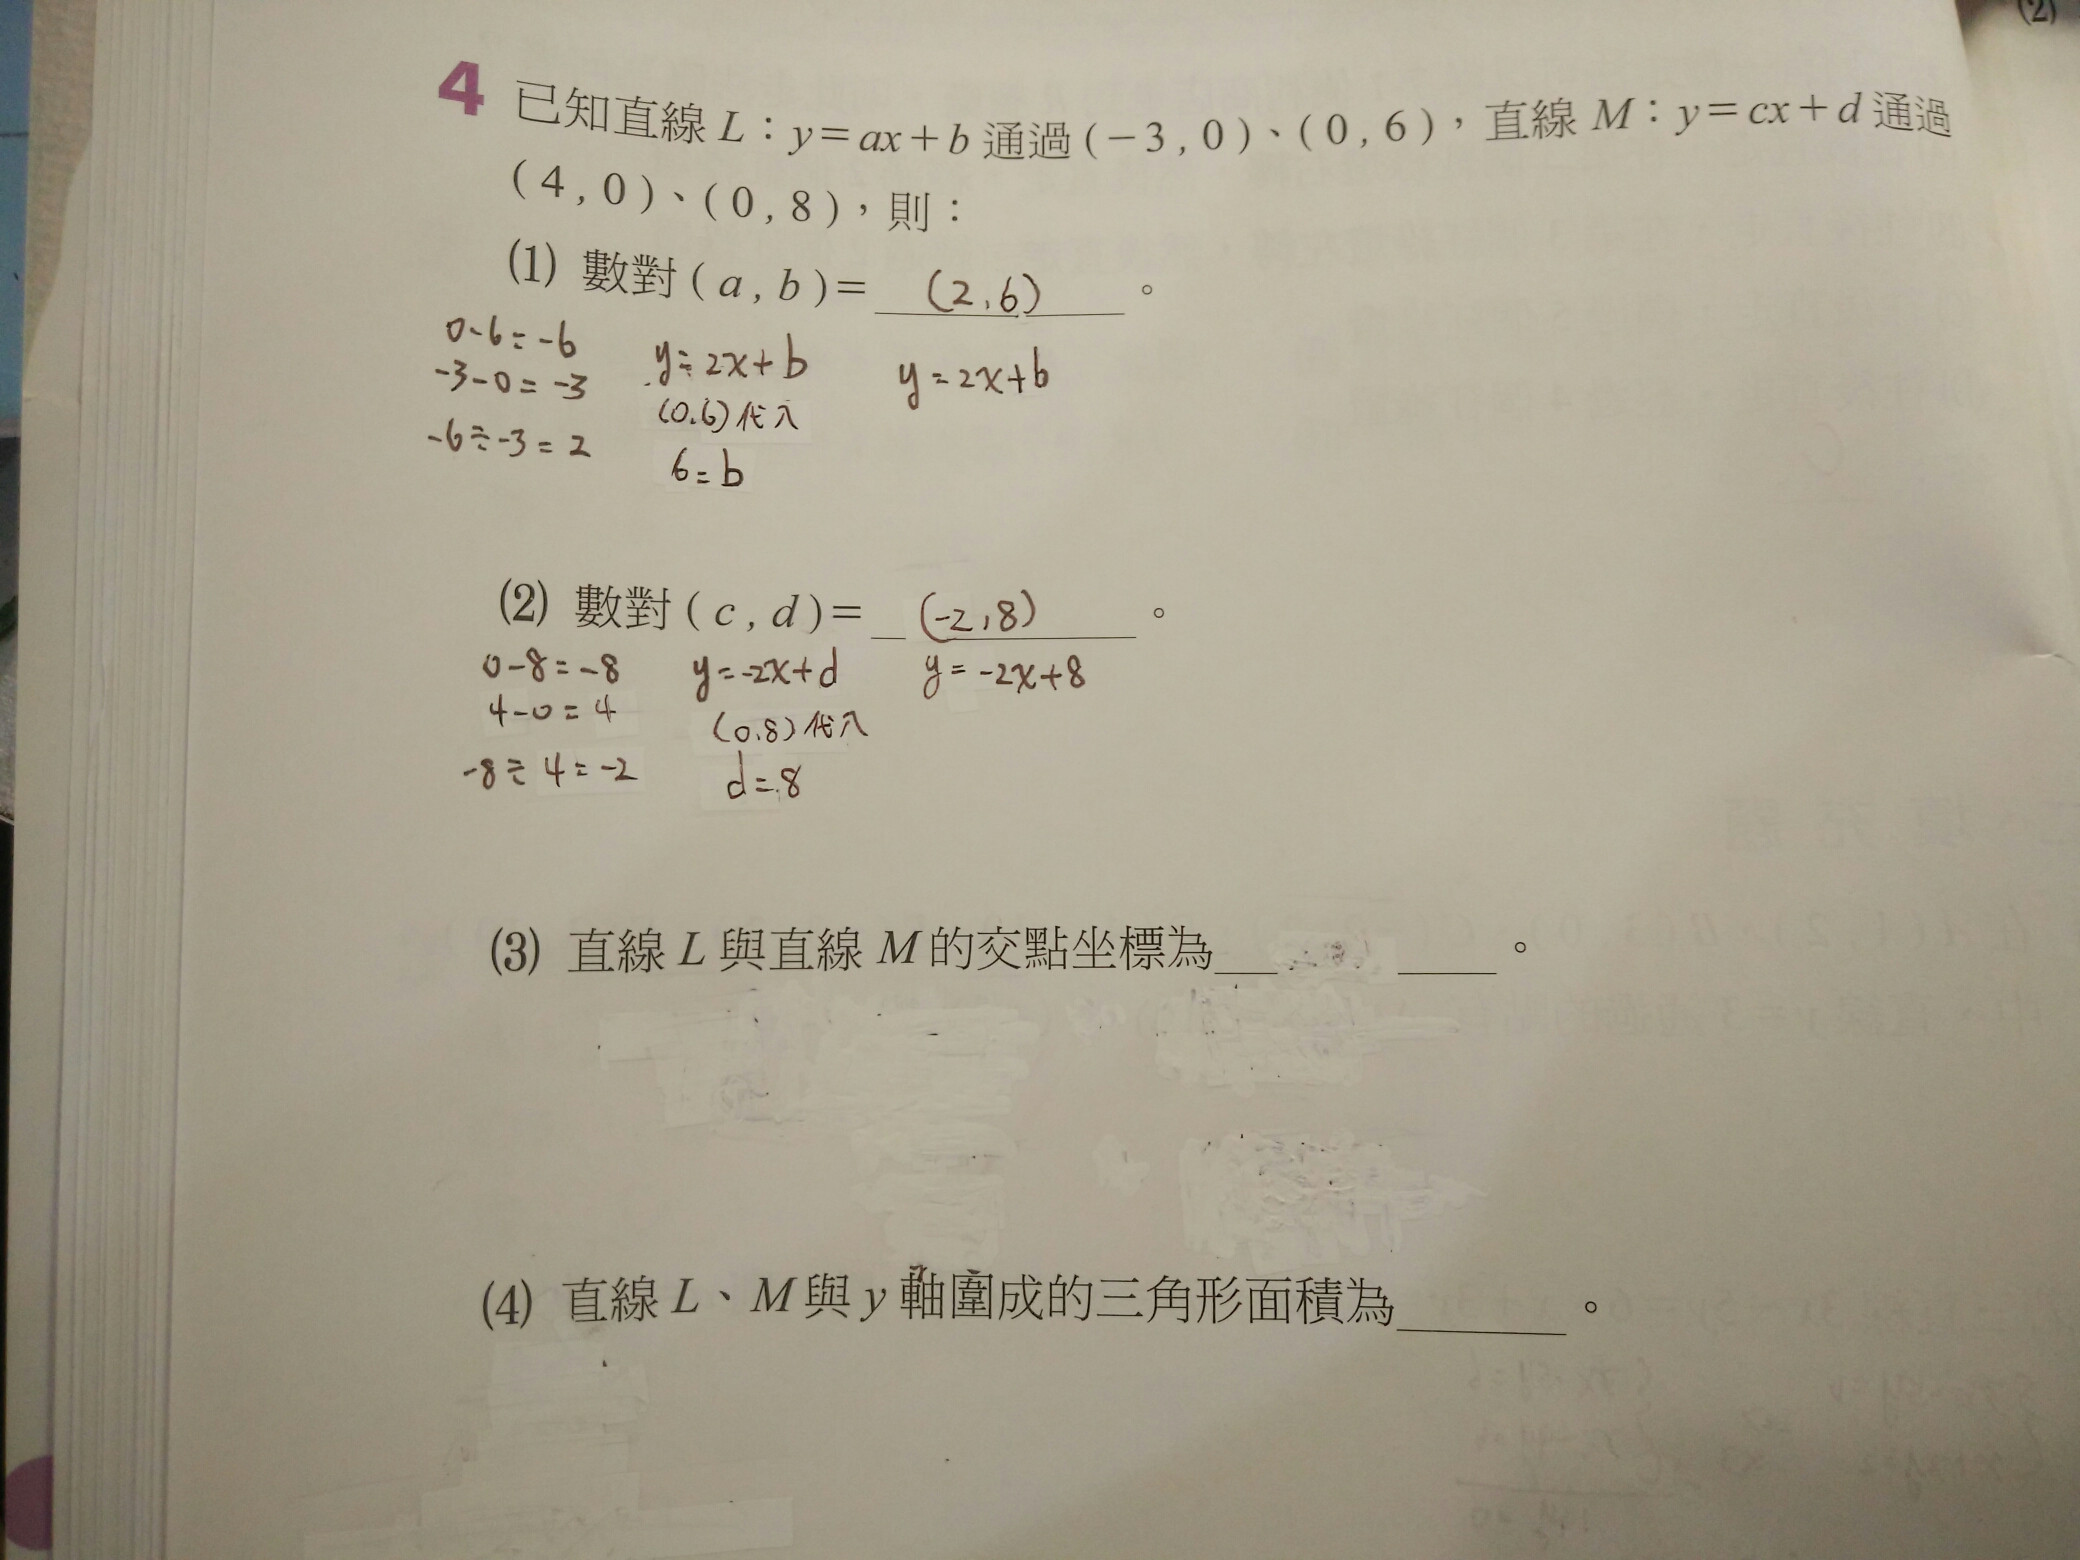 (2)
4 已知直線 L：y＝ax＋b 通過 (－3 , 0 )、( 0 , 6 )，直線 M：y＝cx＋d 通過
( 4 , 0 )、( 0 , 8 )，則：
(1) 數對 ( a , b )＝ (2,6) 。
0-6=-6
-3-0=-3
-6÷-3=2
y=2x+b
(0.6)代入
6=b
y=2x+b
(2) 數對 ( c , d )＝ (-2,8) 。
0-8=-8
4-0=4
-8÷4=-2
y=-2x+d
(0.8)代入
d=8
y=-2x+8
(3) 直線 L 與直線 M 的交點坐標為 。
(4) 直線 L、M 與 y 軸圍成的三角形面積為 。